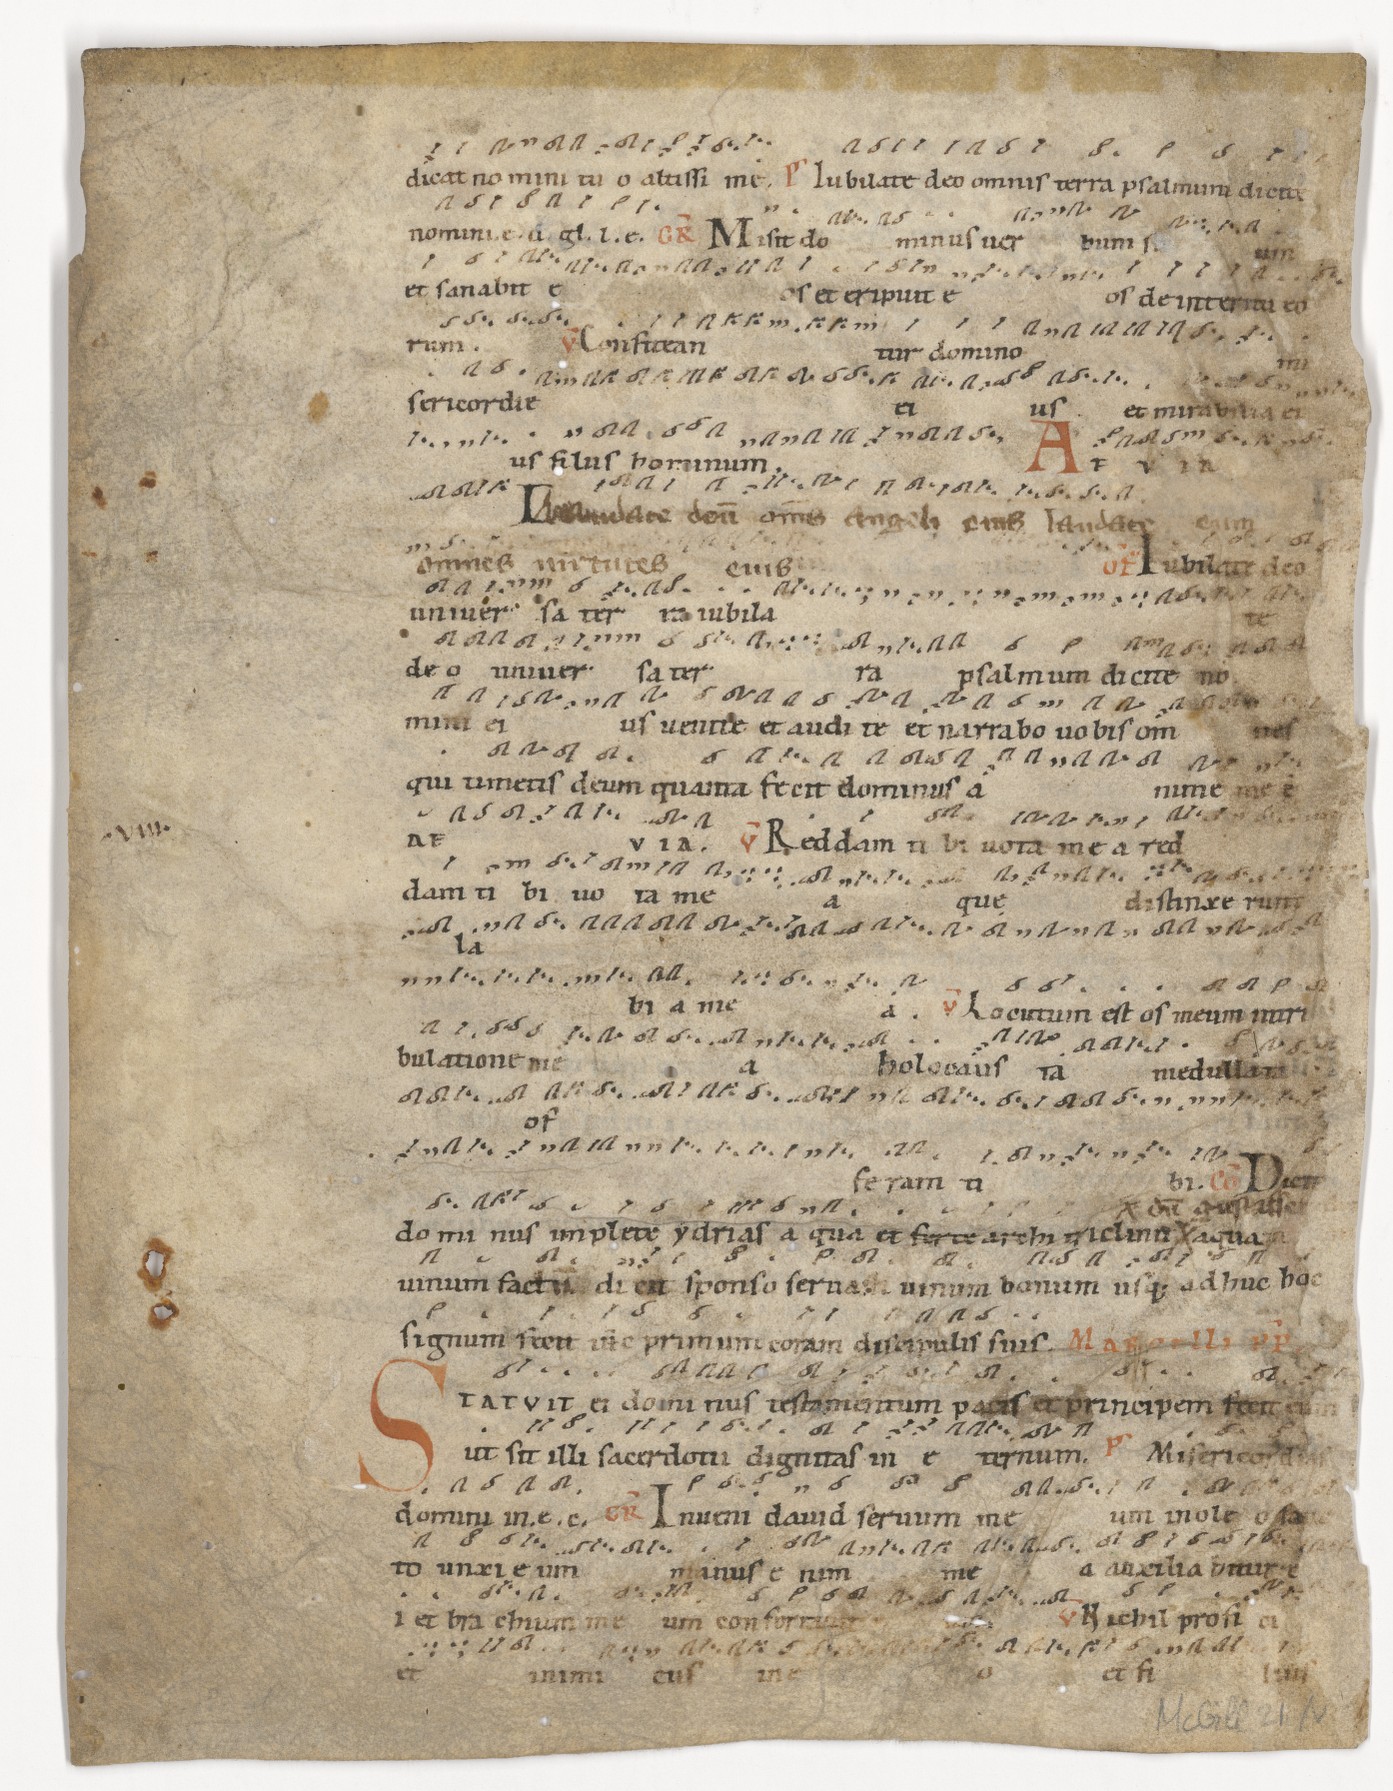 dicat no mini tu o altissi me. ps Iubilate deo omnis terra psalmum dicite
nomini.e.d. gl.l.e. GR Misit do minus uer bum s. um
et sanabit e os et eripuit e os de interitu eo
rum. V Confitean tur domino mi
sericordie ei us. et mirabilia ei
us filiis hominum. A E V I A
Laudate deū om̄s angeli eius laudate eum
omnes uirtutes eius OF Iubilate deo
uniuer sa ter ra iubila te
de o uniuer sa ter ra psalmum dicite no
mini ei us uenite et audi te et narrabo uobis om̄ nes
qui timetis deum quanta fecit dominus a nime me e
AE V I A. V Reddam ti bi uota me a red
dam ti bi uo ta me a que distinxe runt
la
bi a me a. V Locutum est os meum in tri
bulatione me a holocaus ta medullata
of
feram ti bi. CO Dicit
x dn̄ gustasset
do mi nus implete ydrias a qua et ferte archi triclino x aqua
uinum factū dicit sponso seruasti uinum bonum usq; adhuc hoc
signum fecit ih̄c primum coram discipulis suis. Marcelli pp̄
STATVIT ei domi nus testamentum pacis et principem fecit eum
ut sit illi sacerdotii dignitas in e ternum. ps Misericordias
domini in.e.c. GR Inueni dauid seruum me um in ole o sanc
to unxi e um manus e nim me a auxilia bitur e
i et bra chium me um confortauit V Nichil profi ci
et inimi cus in e o et fi lius
McGill 21 N